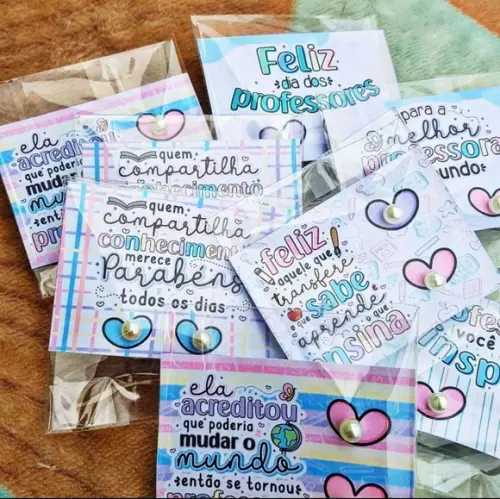 Feliz
dia dos
professores
ela
acreditou
que poderia
mudar o
mundo
então se
quem
compartilha
conhecimento
para a
melhor
professora
mundo
quem
compartilha
conhecimento
merece
Parabéns
todos os dias
feliz
aquele que
transfere
o que
sabe
e
aprende
o que
ensina
você
insp
Ela
acreditou
que poderia
mudar o
mundo
então se tornou